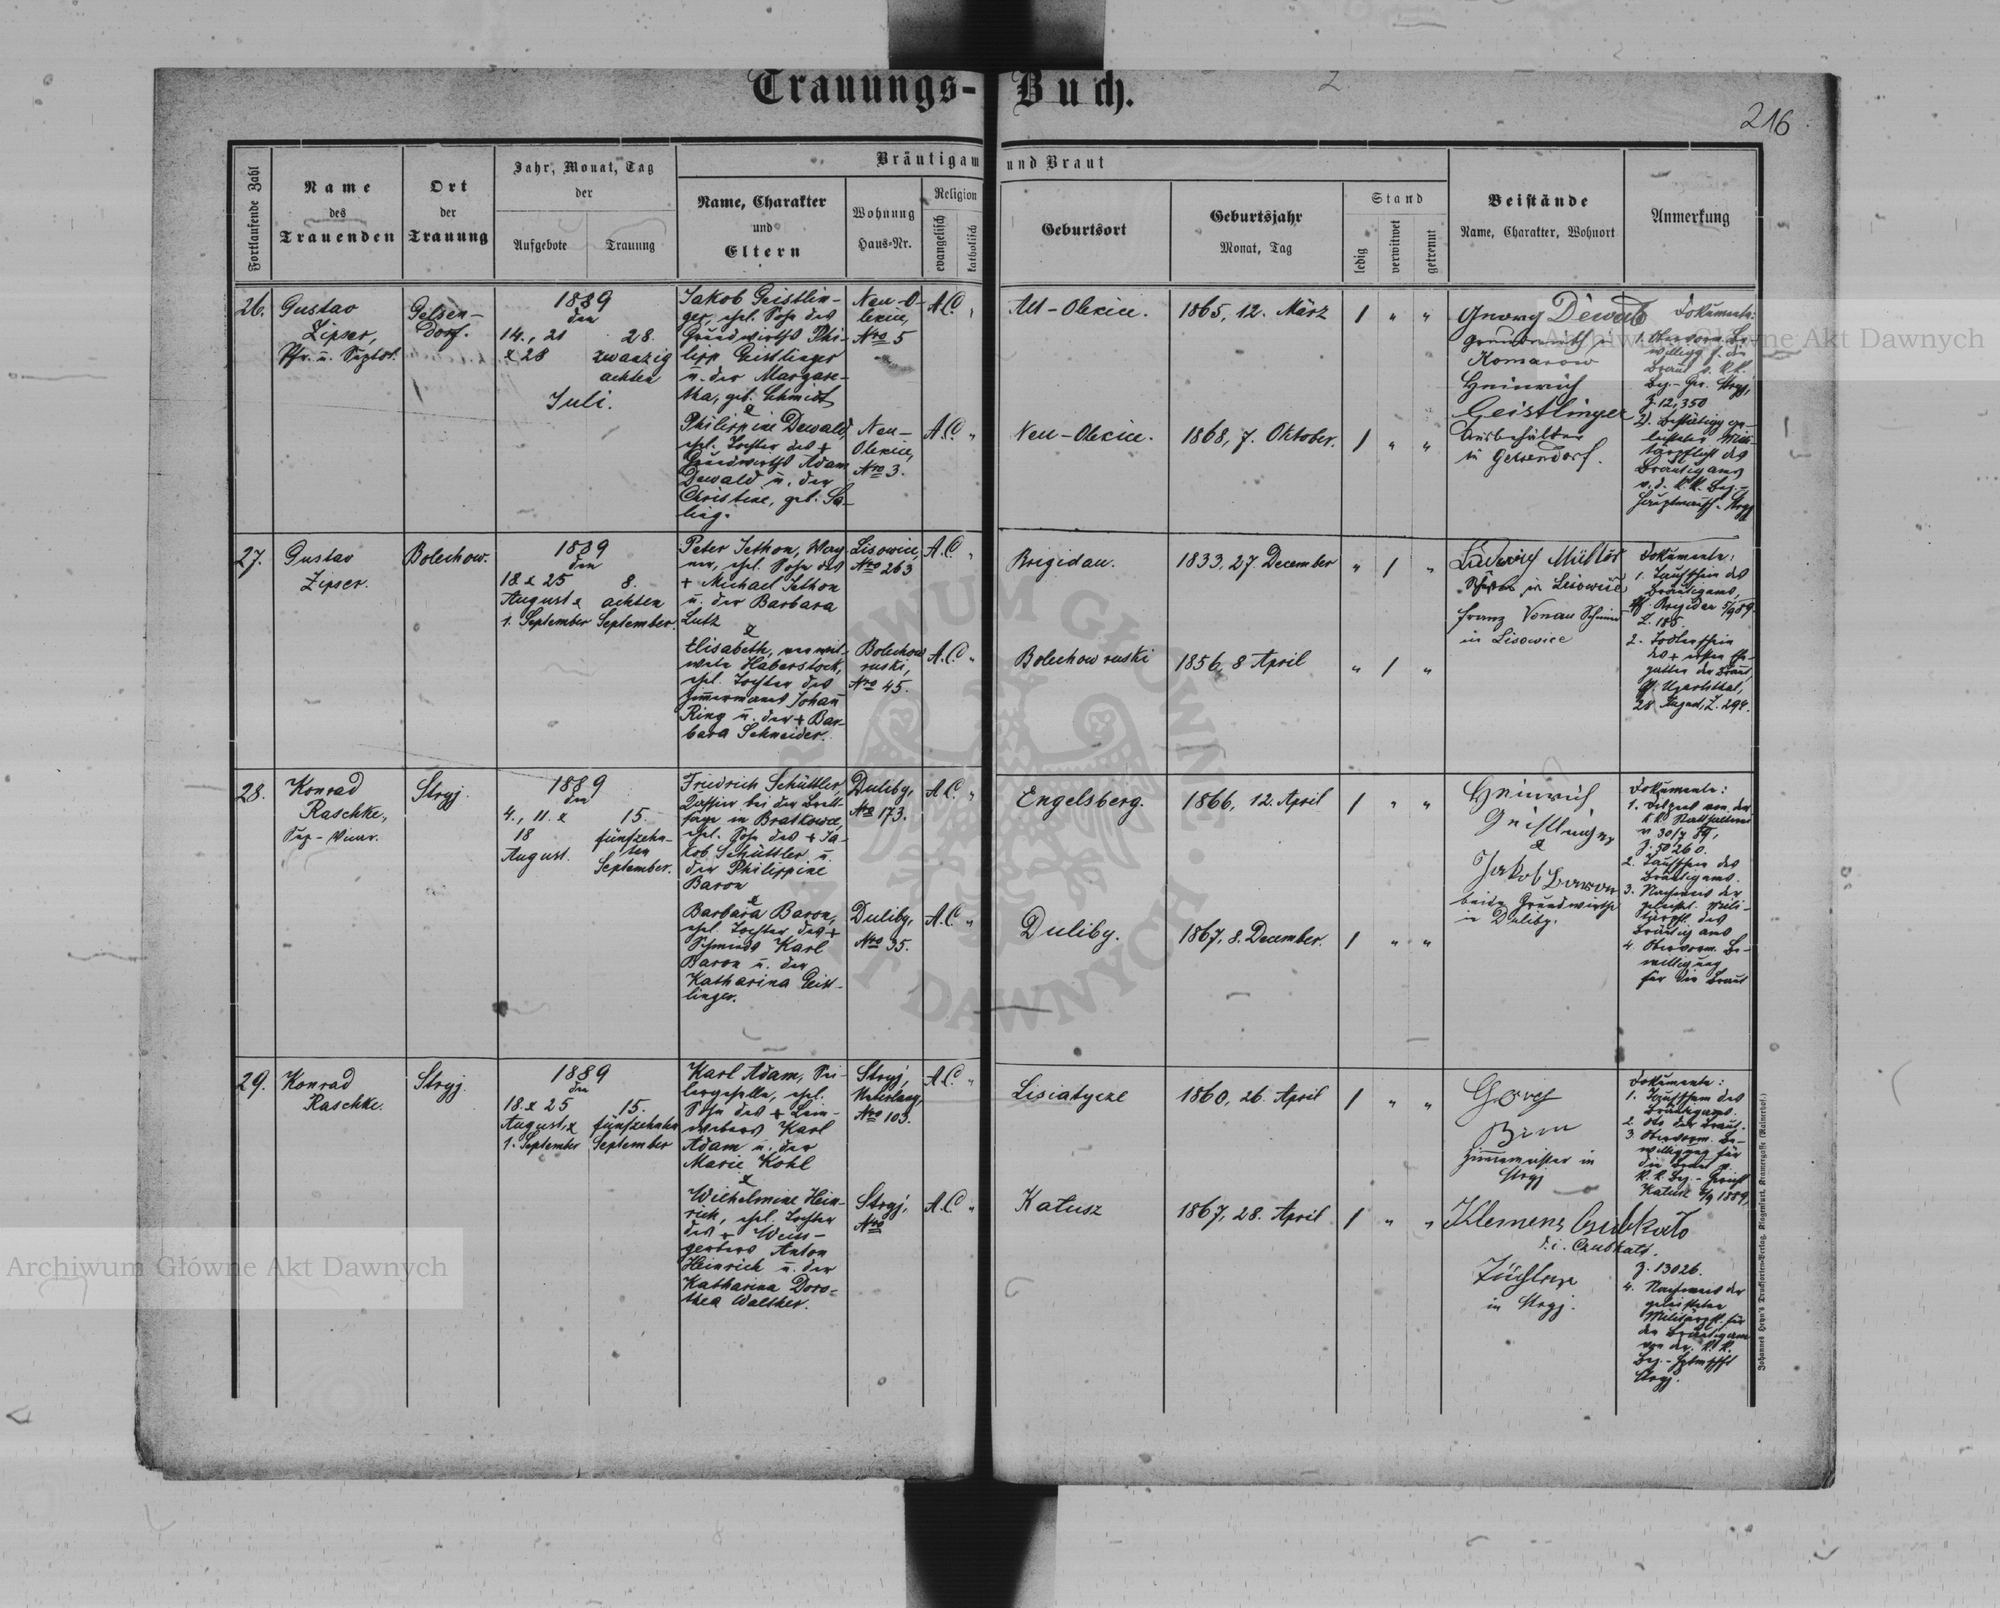 Trauungs-Buch.
2
216
Fortlaufende Zahl
Name
des
Trauenden
Ort
der
Trauung
Jahr, Monat, Tag
der
Aufgebote
Trauung
Bräutigam und Braut
Name, Charakter
und
Eltern
Wohnung
Haus-Nr.
Religion
evangelisch
katholisch
Geburtsort
Geburtsjahr
Monat, Tag
Stand
ledig
verwitwet
getrennt
Beistände
Name, Charakter, Wohnort
Anmerkung
26.
Gustav
Zipser,
Pfr. u.
Gelsen-
dorf.
1889
den
14., 21
& 28
28.
zwanzig
achten
Juli.
Jakob Geistlin-
ger, ehel. Sohn des
Grundwirths Phi-
lipp Geistlinger
u. der Margare-
tha, geb. Schmidt
&
Philippine Dewald,
ehel. Tochter des +
Grundwirths Adam
Dewald u. der
Christine, geb. Sa-
ling.
Neu-O-
lexice,
Nro 5
Neu-
Olexice,
Nro 3.
A.C. "
A.C. "
Alt-Olexice.
Neu-Olexice.
1865, 12. März
1868, 7. Oktober.
1 " "
1 " "
Georg Dewald
Grundwirth in
Komarow
Heinrich
Geistlinger
in Gelsendorf.
Dokumente:
1. Obervorm. Be-
willigg f. die
Braut v. k.k.
Bez.-Ger. Stryj,
Z. 12,350
2. Bestätigg ge-
leisteter Mili-
tärpflicht des
Bräutigams
v. d. k.k. Bez.-
Hauptmansch. Stryj
27.
Gustav
Zipser.
Bolechow.
1889
den
18 & 25
August &
1. September
8.
achten
September.
Peter Jethon, Wag-
ner, ehel. Sohn des
+ Michael Jethon
u. der Barbara
Lutz
&
Elisabeth, verwit-
wete Haberstock,
ehel. Tochter des
Zimmermanns Johann
Ring u. der + Bar-
bara Schneider.
Lisowice,
Nro 263
Bolechow
ruski,
Nro 45.
A.C. "
A.C. "
Brigidau.
Bolechow ruski
1833, 27. December
1856, 8 April
" 1 "
" 1 "
Ludwig Müller
in Lisowice
Franz Vonau
in Lisowice
Dokumente:
1. Taufschein des
Bräutigams,
Brigidau 5/9 89.
Z. 185.
2. Todtenschein
des + ersten Ehe-
gatten der Braut,
Ugartsthal,
Z. 294.
28.
Konrad
Raschke,
Sup-Vicar.
Stryj.
1889
den
4., 11. &
18
August.
15.
fünfzehn-
ten
September.
Friedrich Schüttler,
Platzier bei der Brett-
säge in Bratkowce
ehel. Sohn des + Ja-
kob Schüttler u.
der Philippine
Baron
&
Barbara Baron,
ehel. Tochter des +
Schmieds Karl
Baron u. der
Katharina Geist-
linger.
Duliby,
Nro 173.
Duliby,
Nro 35.
A.C. "
A.C. "
Engelsberg.
Duliby.
1866, 12. April
1867, 8. December.
1 " "
1 " "
Heinrich
Geistlinger
&
Jakob Baron
beide Grundwirthe
in Duliby.
Dokumente:
1. Dispens von der
k.k. Statthalterei
v. 30/7 89,
Z. 50260.
2. Taufschein des
Bräutigams.
3. Nachweis der
geleist. Mili-
tärpfl. des
Bräutigams
4. Obervorm. Be-
willigung
für die Braut
29.
Konrad
Raschke.
Stryj.
1889
den
18. & 25
August, &
1. September
15.
fünfzehnten
September
Karl Adam, Sei-
lergeselle, ehel.
Sohn des + Lein-
webers Karl
Adam u. der
Marie Kohl
&
Wilhelmine Hein-
rich, ehel. Tochter
des + Weiss-
gerbers Anton
Heinrich u. der
Katharina Doro-
thea Walther.
Stryj,
Nro 103.
Stryj,
Nro
A.C. "
A.C. "
Lisiatycze
Katusz
1860, 26. April
1867, 28. April
1 " "
1 " "
Georg
in
Stryj
Klemens Czubkato
d.i. Czubkato.
in Stryj.
Dokumente:
1. Taufschein des
Bräutigams.
2. dto der Braut.
3. Obervorm. Be-
willigung für
die Braut v.
k.k. Bez.-Gericht
Katusz 1889,
Z. 13026.
4. Nachweis der
geleisteten
Militärpfl. für
den Bräutigam
von der k.k.
Bez.-Hptmschft
Stryj.
Johannes Heyn's Drucksorten-Verlag, Klagenfurt, Kramergasse (Rainerhof.)
Archiwum Główne Akt Dawnych
Archiwum Główne Akt Dawnych
ARCHIWUM GŁÓWNE AKT DAWNYCH